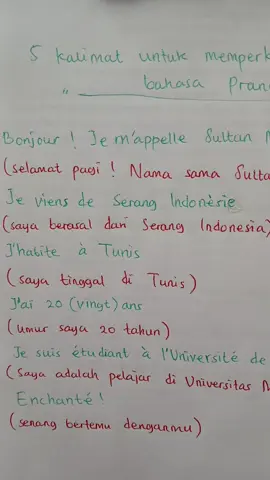 5 kalimat untuk memperk
" bahasa Pran
Bonjour ! Je m'appelle Sultan
(selamat pagi ! Nama sama Sulta
Je viens de Serang Indonèsie
(saya berasal dari Serang Indonesia)
J'habite à Tunis
(saya tinggal di Tunis)
J'ai 20 (vingt) ans
(umur saya 20 tahun)
Je suis étudiant à l'Université de
(Saya adalah pelajar di Universitas
Enchanté !
(senang bertemu denganmu)